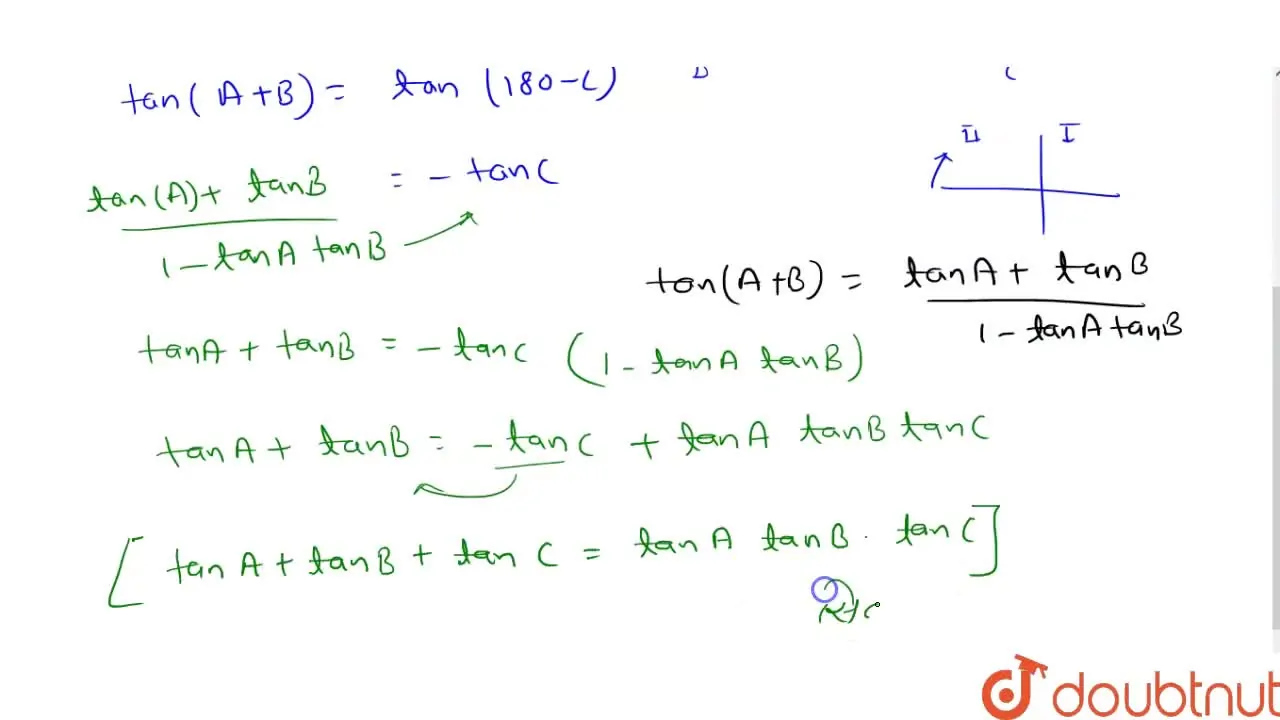 tan(A+B) = tan (180-C)
II I
tan(A)+ tanB = - tanC
1 - tanA tanB
tan(A+B) = tanA + tanB
1 - tanA tanB
tanA + tanB = - tanC (1 - tanA tanB)
tanA + tanB = - tanC + tanA tanB tanC
[tanA + tanB + tan C = tanA tanB . tanC]
doubtnut